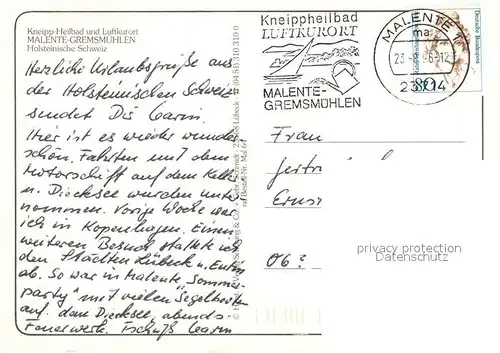 Kneipp-Heilbad und Luftkurort
MALENTE-GREMSMÜHLEN
Holsteinische Schweiz
Herzliche Urlaubsgrüße aus
der Holsteinischen Schweiz
sendet Dir Carin.
Hier ist es wieder wunder
schön. Fahrten mit dem
Motorschiff auf dem Keller
u. Dieksee wurden unter
nommen. Vorige Woche war
ich in Kopenhagen. Einen
weiteren Besuch stattete ich
den Städten Lübeck u. Eutin
ab. So war in Malente "Sommer
party" mit vielen Segelbooten
auf dem Dieksee, abends
Feuerwerk. Tschüß Carin
Kneippheilbad
LUFTKURORT
MALENTE-
GREMSMÜHLEN
MALENTE 1
ma
23714
Deutsche Bundespost
80
Frau
Ernst
privacy protection
Datenschutz